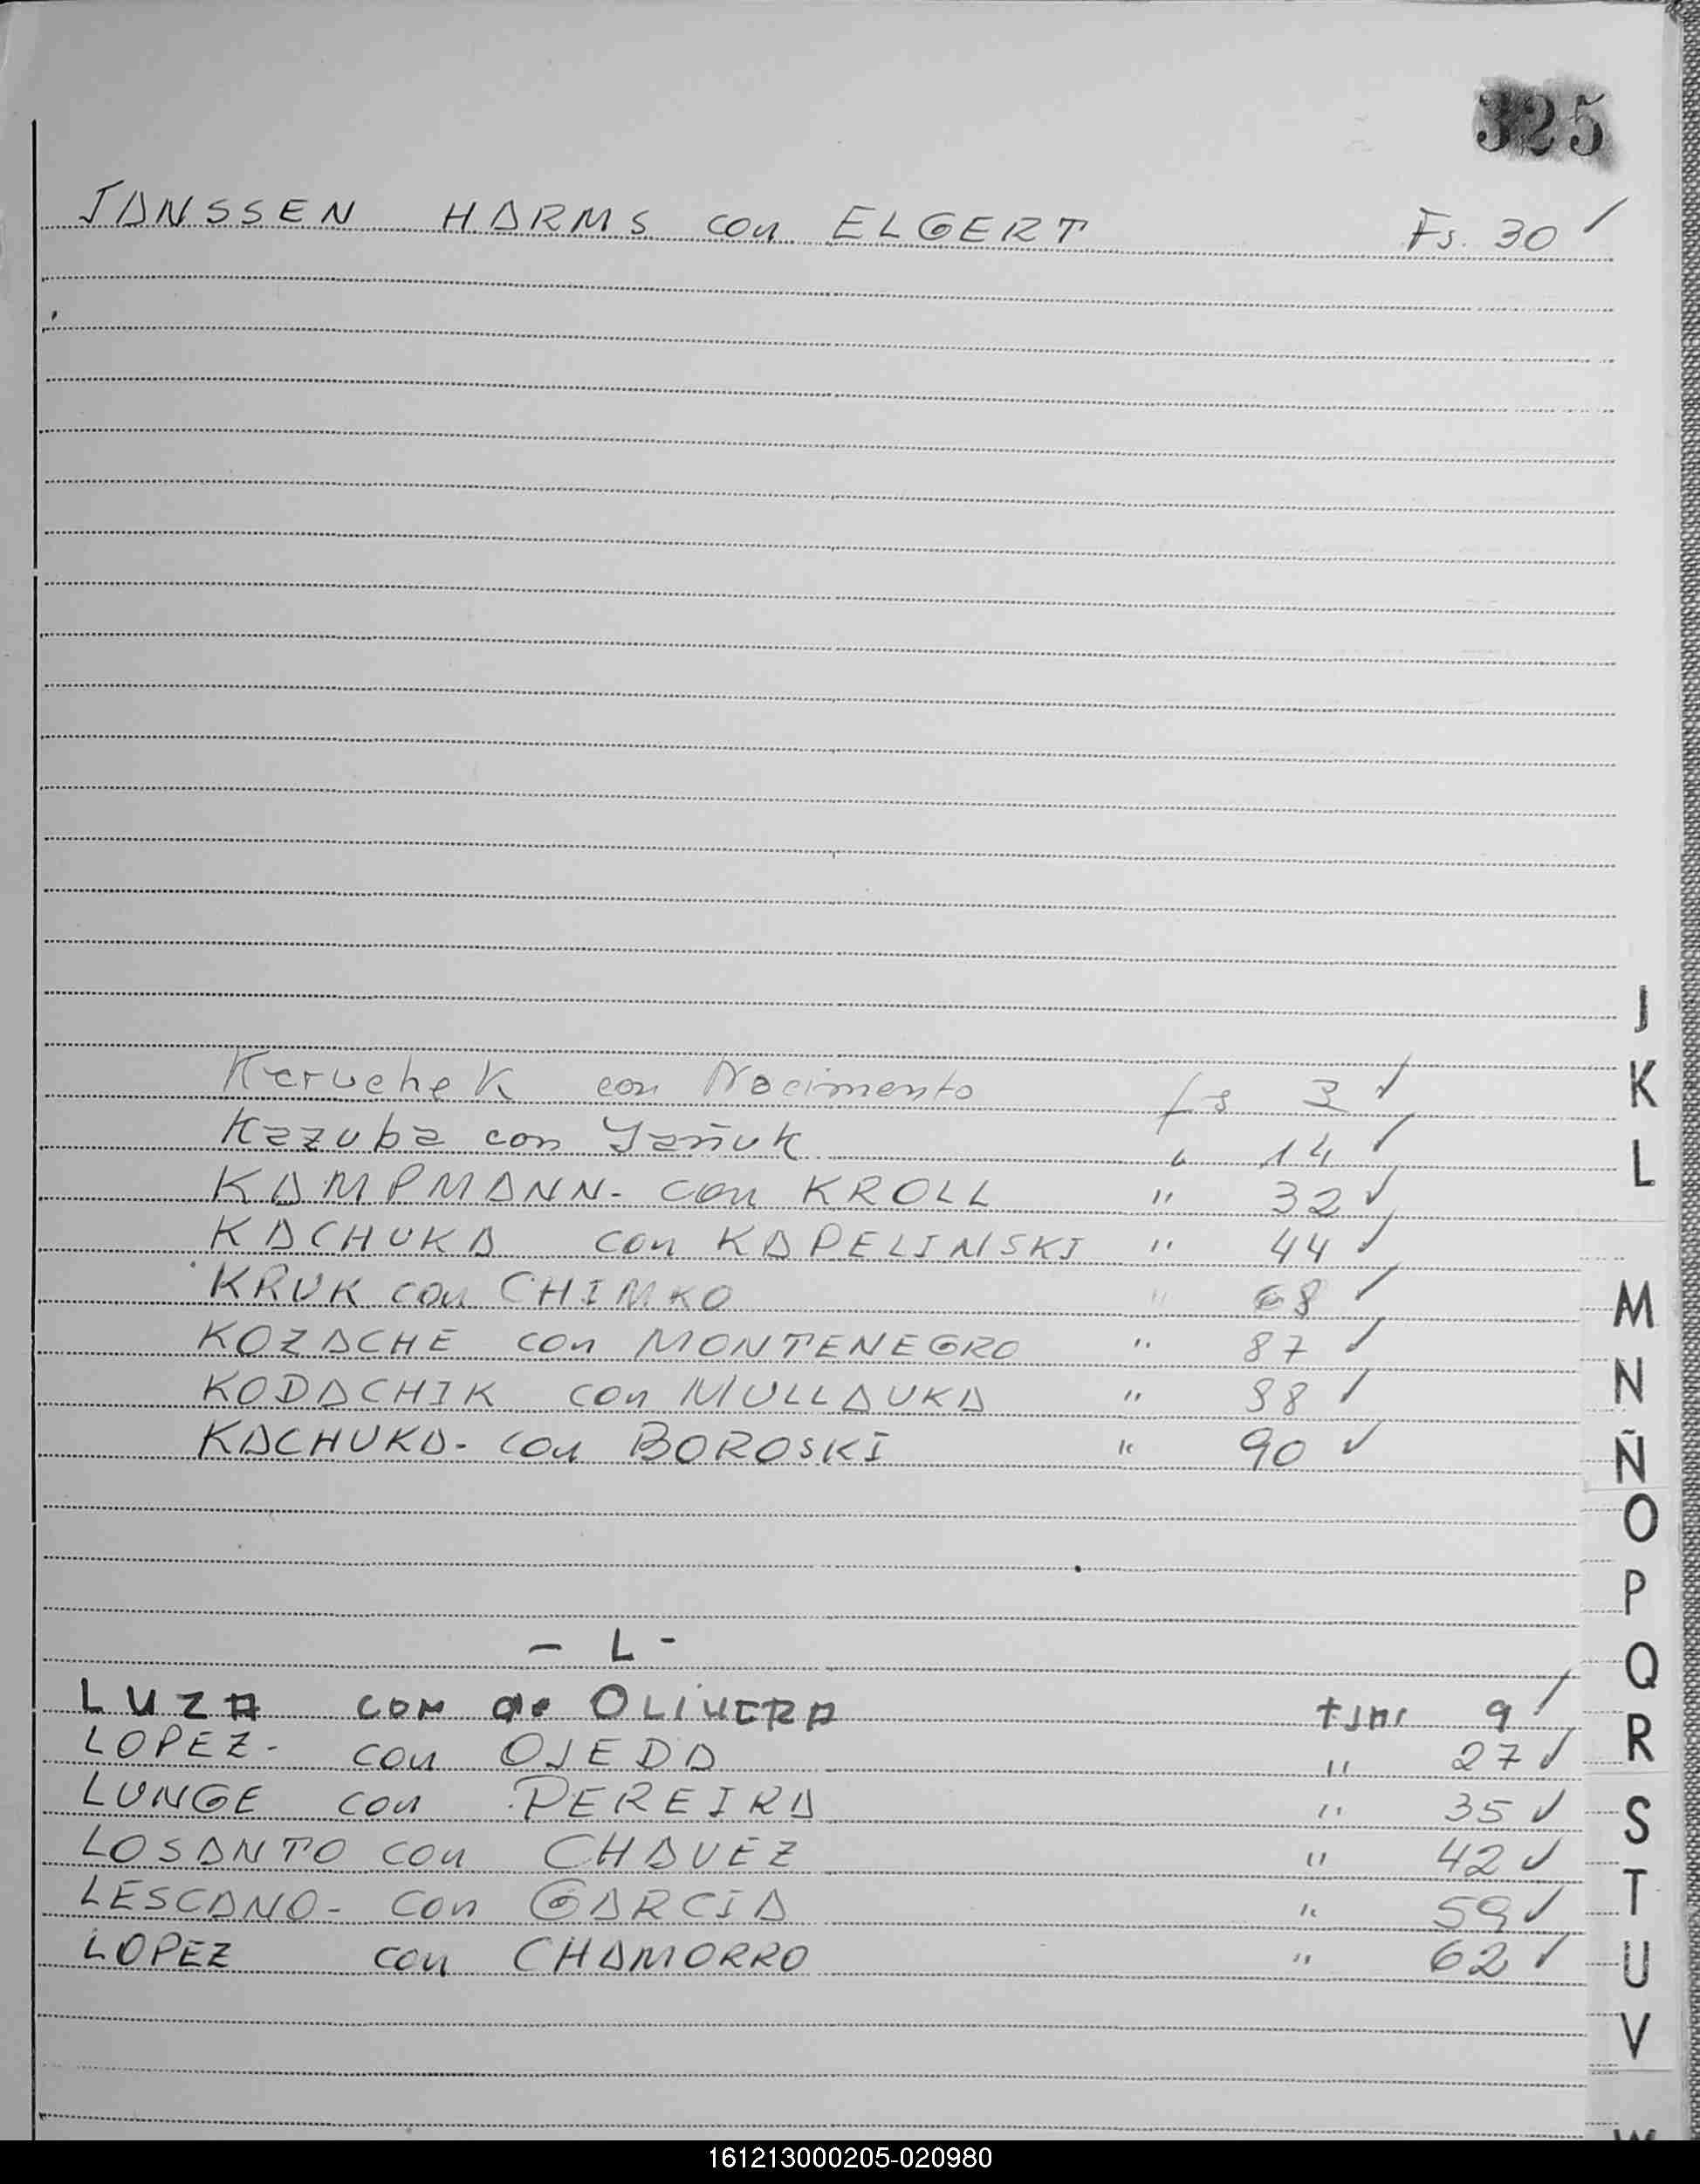 325
JANSSEN HARMS con ELGERT Fs. 30 ✓
J
Keruchek con Nacimento fs 3 ✓
K
Kazuba con Yañuk " 14 ✓
L
KAMPMANN- con KROLL " 32 ✓
KACHUKA con KAPELINSKI " 44 ✓
KRUK con CHIMKO " 68 ✓
M
KOZACHE con MONTENEGRO " 87 ✓
N
KODACHIK con MULLAUKA " 88 ✓
KACHUKA- con BOROSKI " 90 ✓
Ñ
O
P
- L -
Q
LUZA con de OLIVERA 9 ✓
R
LOPEZ- con OJEDA " 27 ✓
LUNGE con PEREIRA " 35 ✓
S
LOSANTO con CHAVEZ " 42 ✓
T
LESCANO- con GARCIA " 59 ✓
LOPEZ con CHAMORRO " 62 ✓
U
V
161213000205-020980